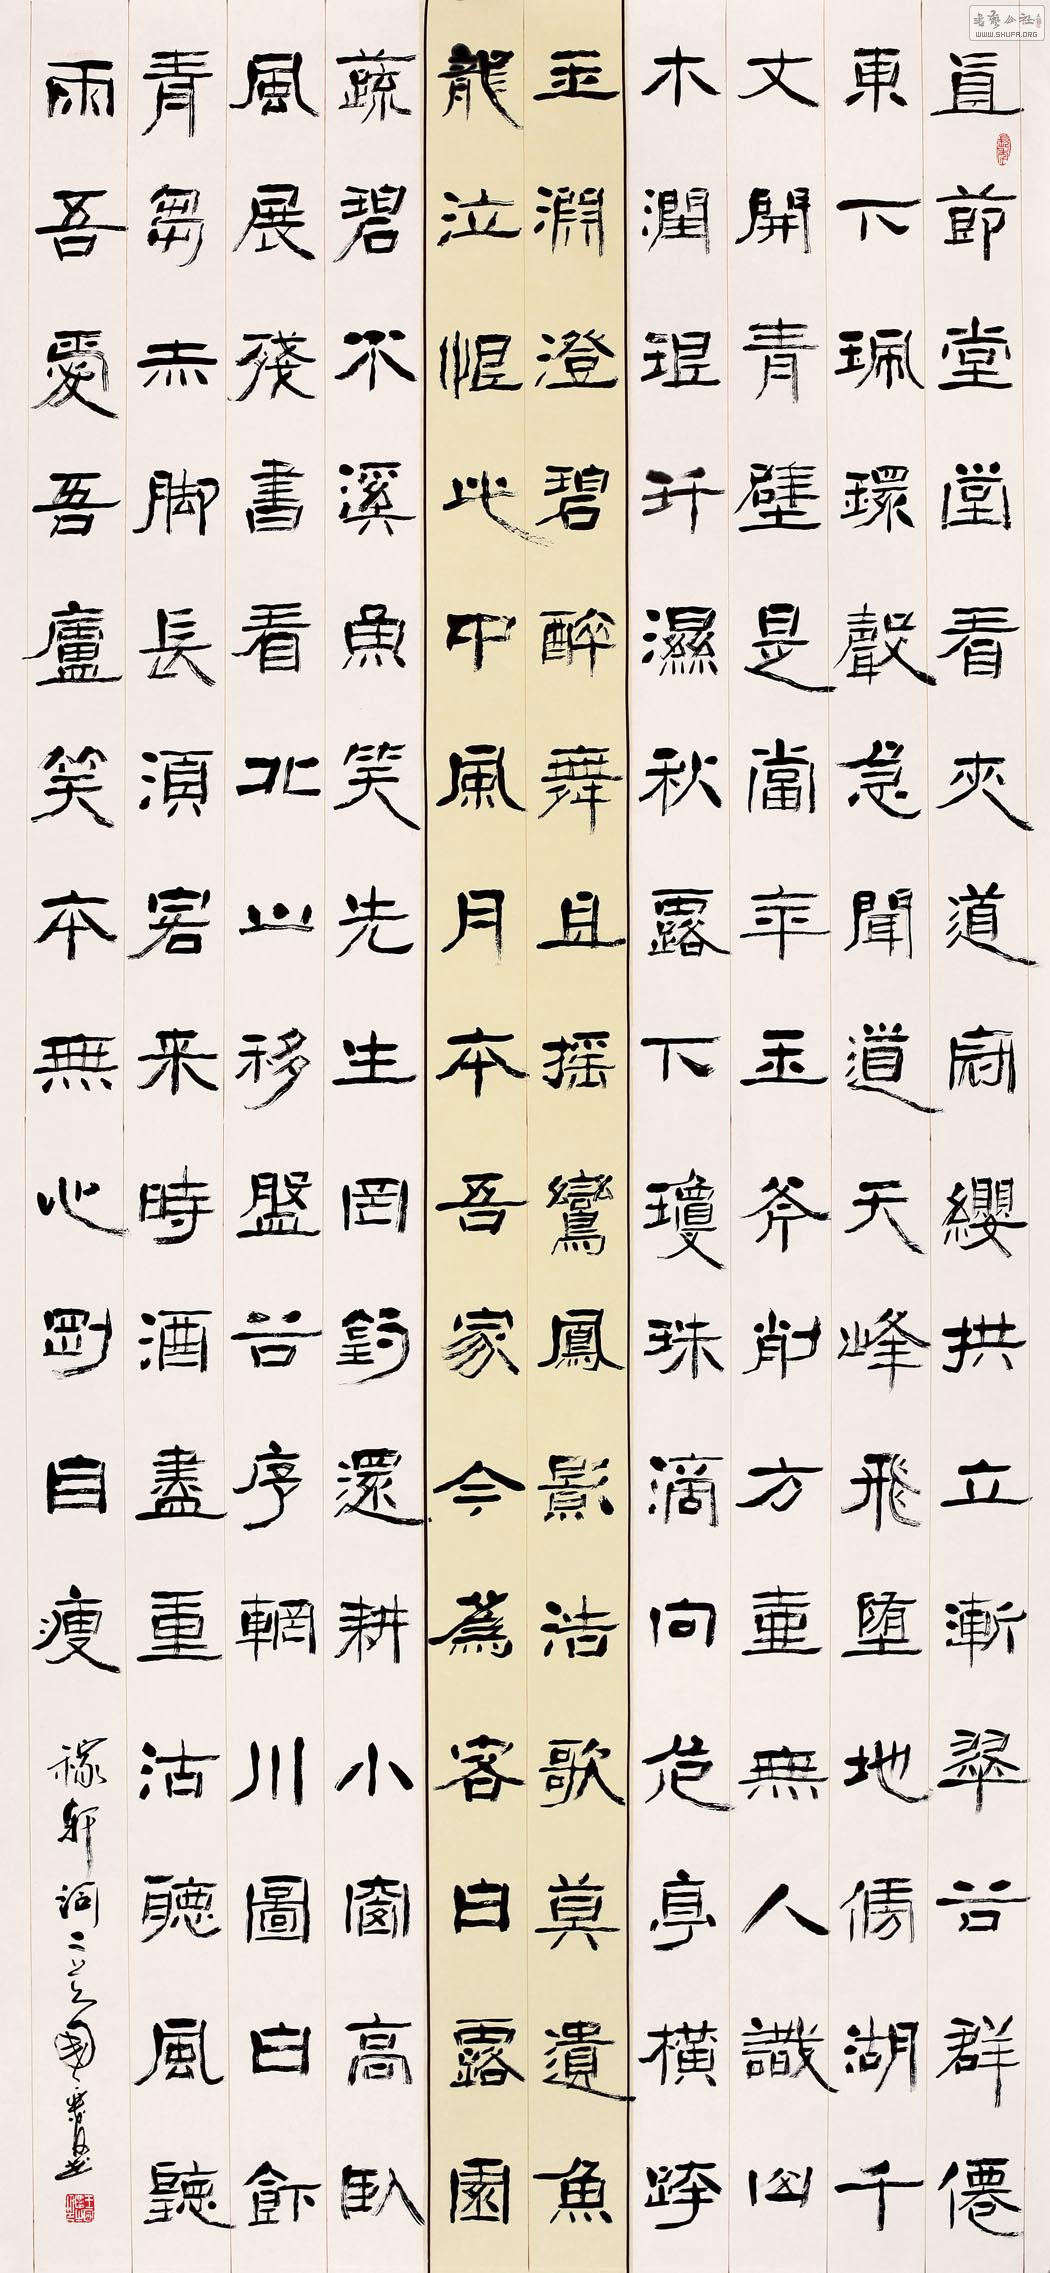 直節堂堂看夾道冠纓拱立漸翠谷群僊
東下珮環聲急聞道天峰飛墮地傍湖千
丈開青壁是當年玉斧削方壺無人識山
木潤琅玕濕秋露下瓊珠滴向危亭橫跨
玉淵澄碧醉舞且摇鸞鳳影浩歌莫遣魚
龍泣恨此中風月本吾家今爲客白露園
蔬碧不溪魚笑先生罔釣還耕小窗高臥
風展殘書看北山移盤谷序輞川圖白飰
青芻赤脚長須客来時酒盡重沽聽風聽
雨吾愛吾廬笑本無心剛自瘦
稼軒詞二
書艺公社
WWW.SHUFA.ORG